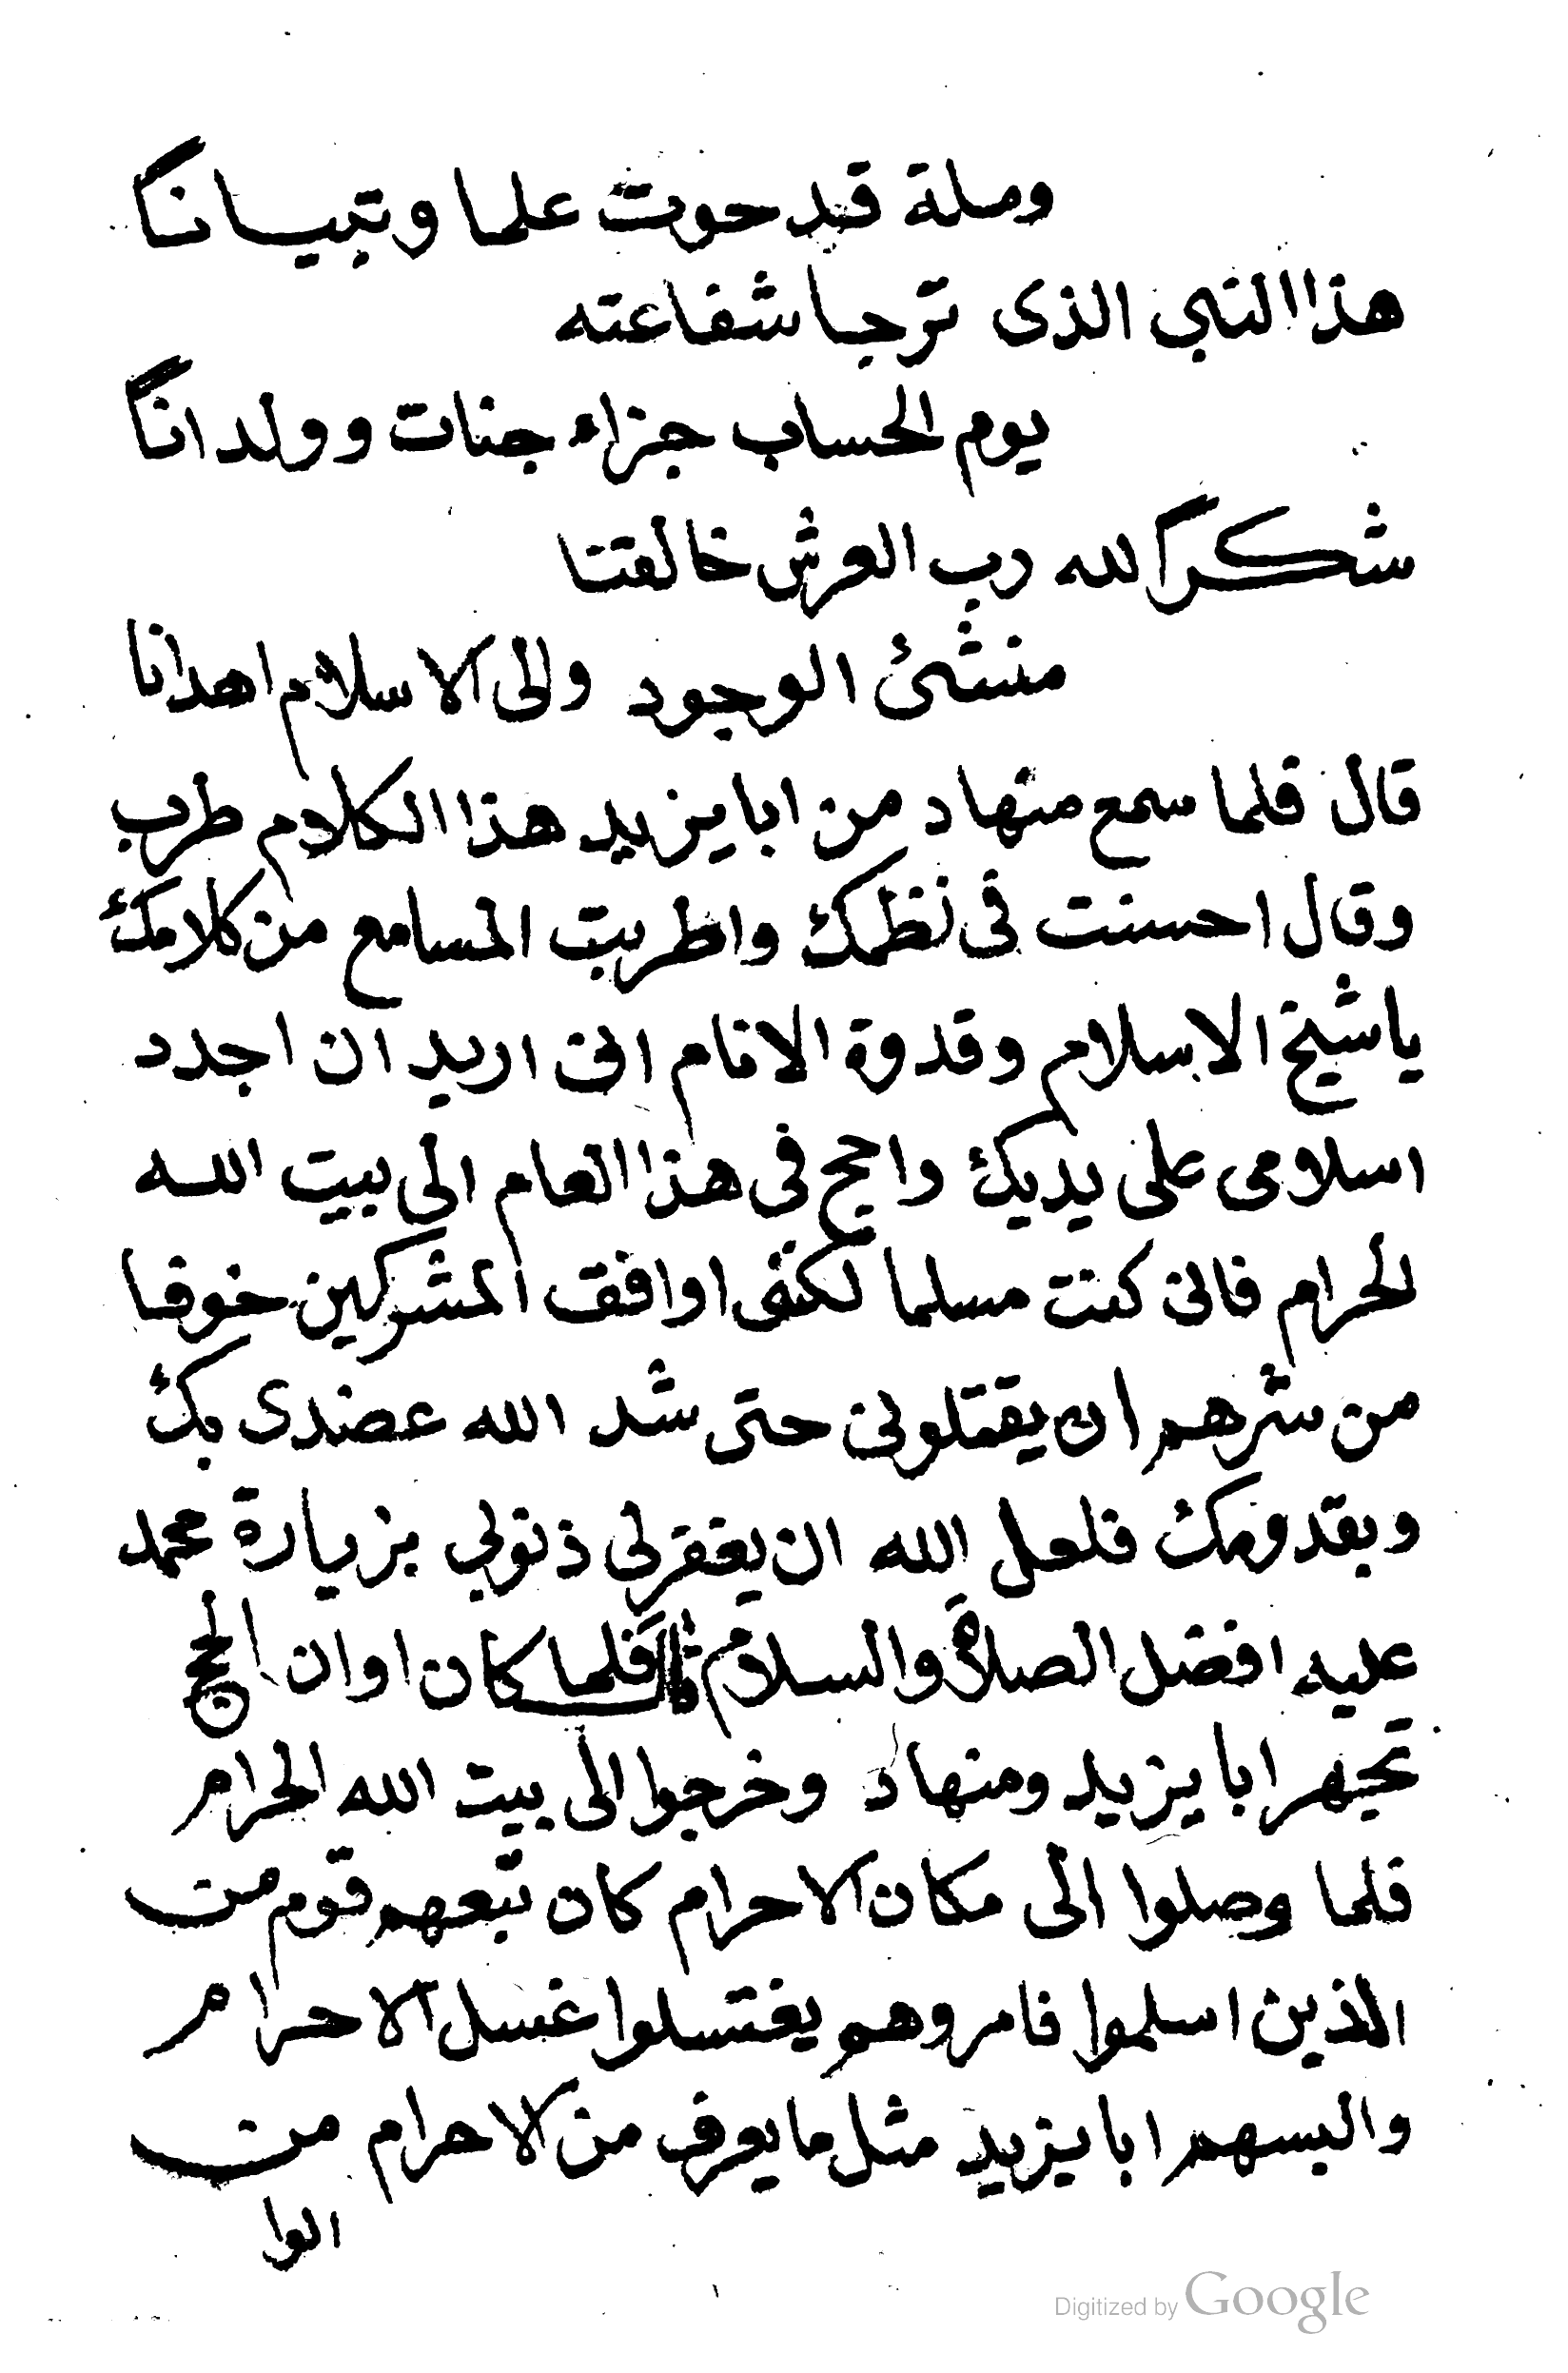 وملة قد حوت علما وتبيانًا
هذا النبي الذى ترجا شفاعته
يوم الحساب جزاء جنات وولدانًا
شكرًا لله رب العرش خالقنا
منشئ الوجود والى الاسلام اهدانا
قال فلما سمع منهاد من ابا يزيد هذا الكلام طرب
وقال احسنت فى نظمك واطربت المسامع من كلامك
يا شيخ الاسلام وقدوة الانام انى اريد ان اجدد
اسلامى على يديك واحج فى هذا العام الى بيت الله
الحرام فانى كنت مسلما لكنى اوافق المشركين خوفا
من شرهم ان يقتلونى حتى شد الله عضدى بك
وبقدومك فلعل الله ان يغفر لى ذنوبي بزيارة محمد
عليه افضل الصلاة والسلام فلما كان اوان الحج
تجهر ابا يزيد ومنهاد وخرجوا الى بيت الله الحرام
فلما وصلوا الى مكان الاحرام كان تبعهم قوم من
الذين اسلموا فامروهم يغتسلوا غسل الاحرام
والبسهم ابا يزيد مثل ما يعرف من الاحرام من
الوا
Digitized by Google